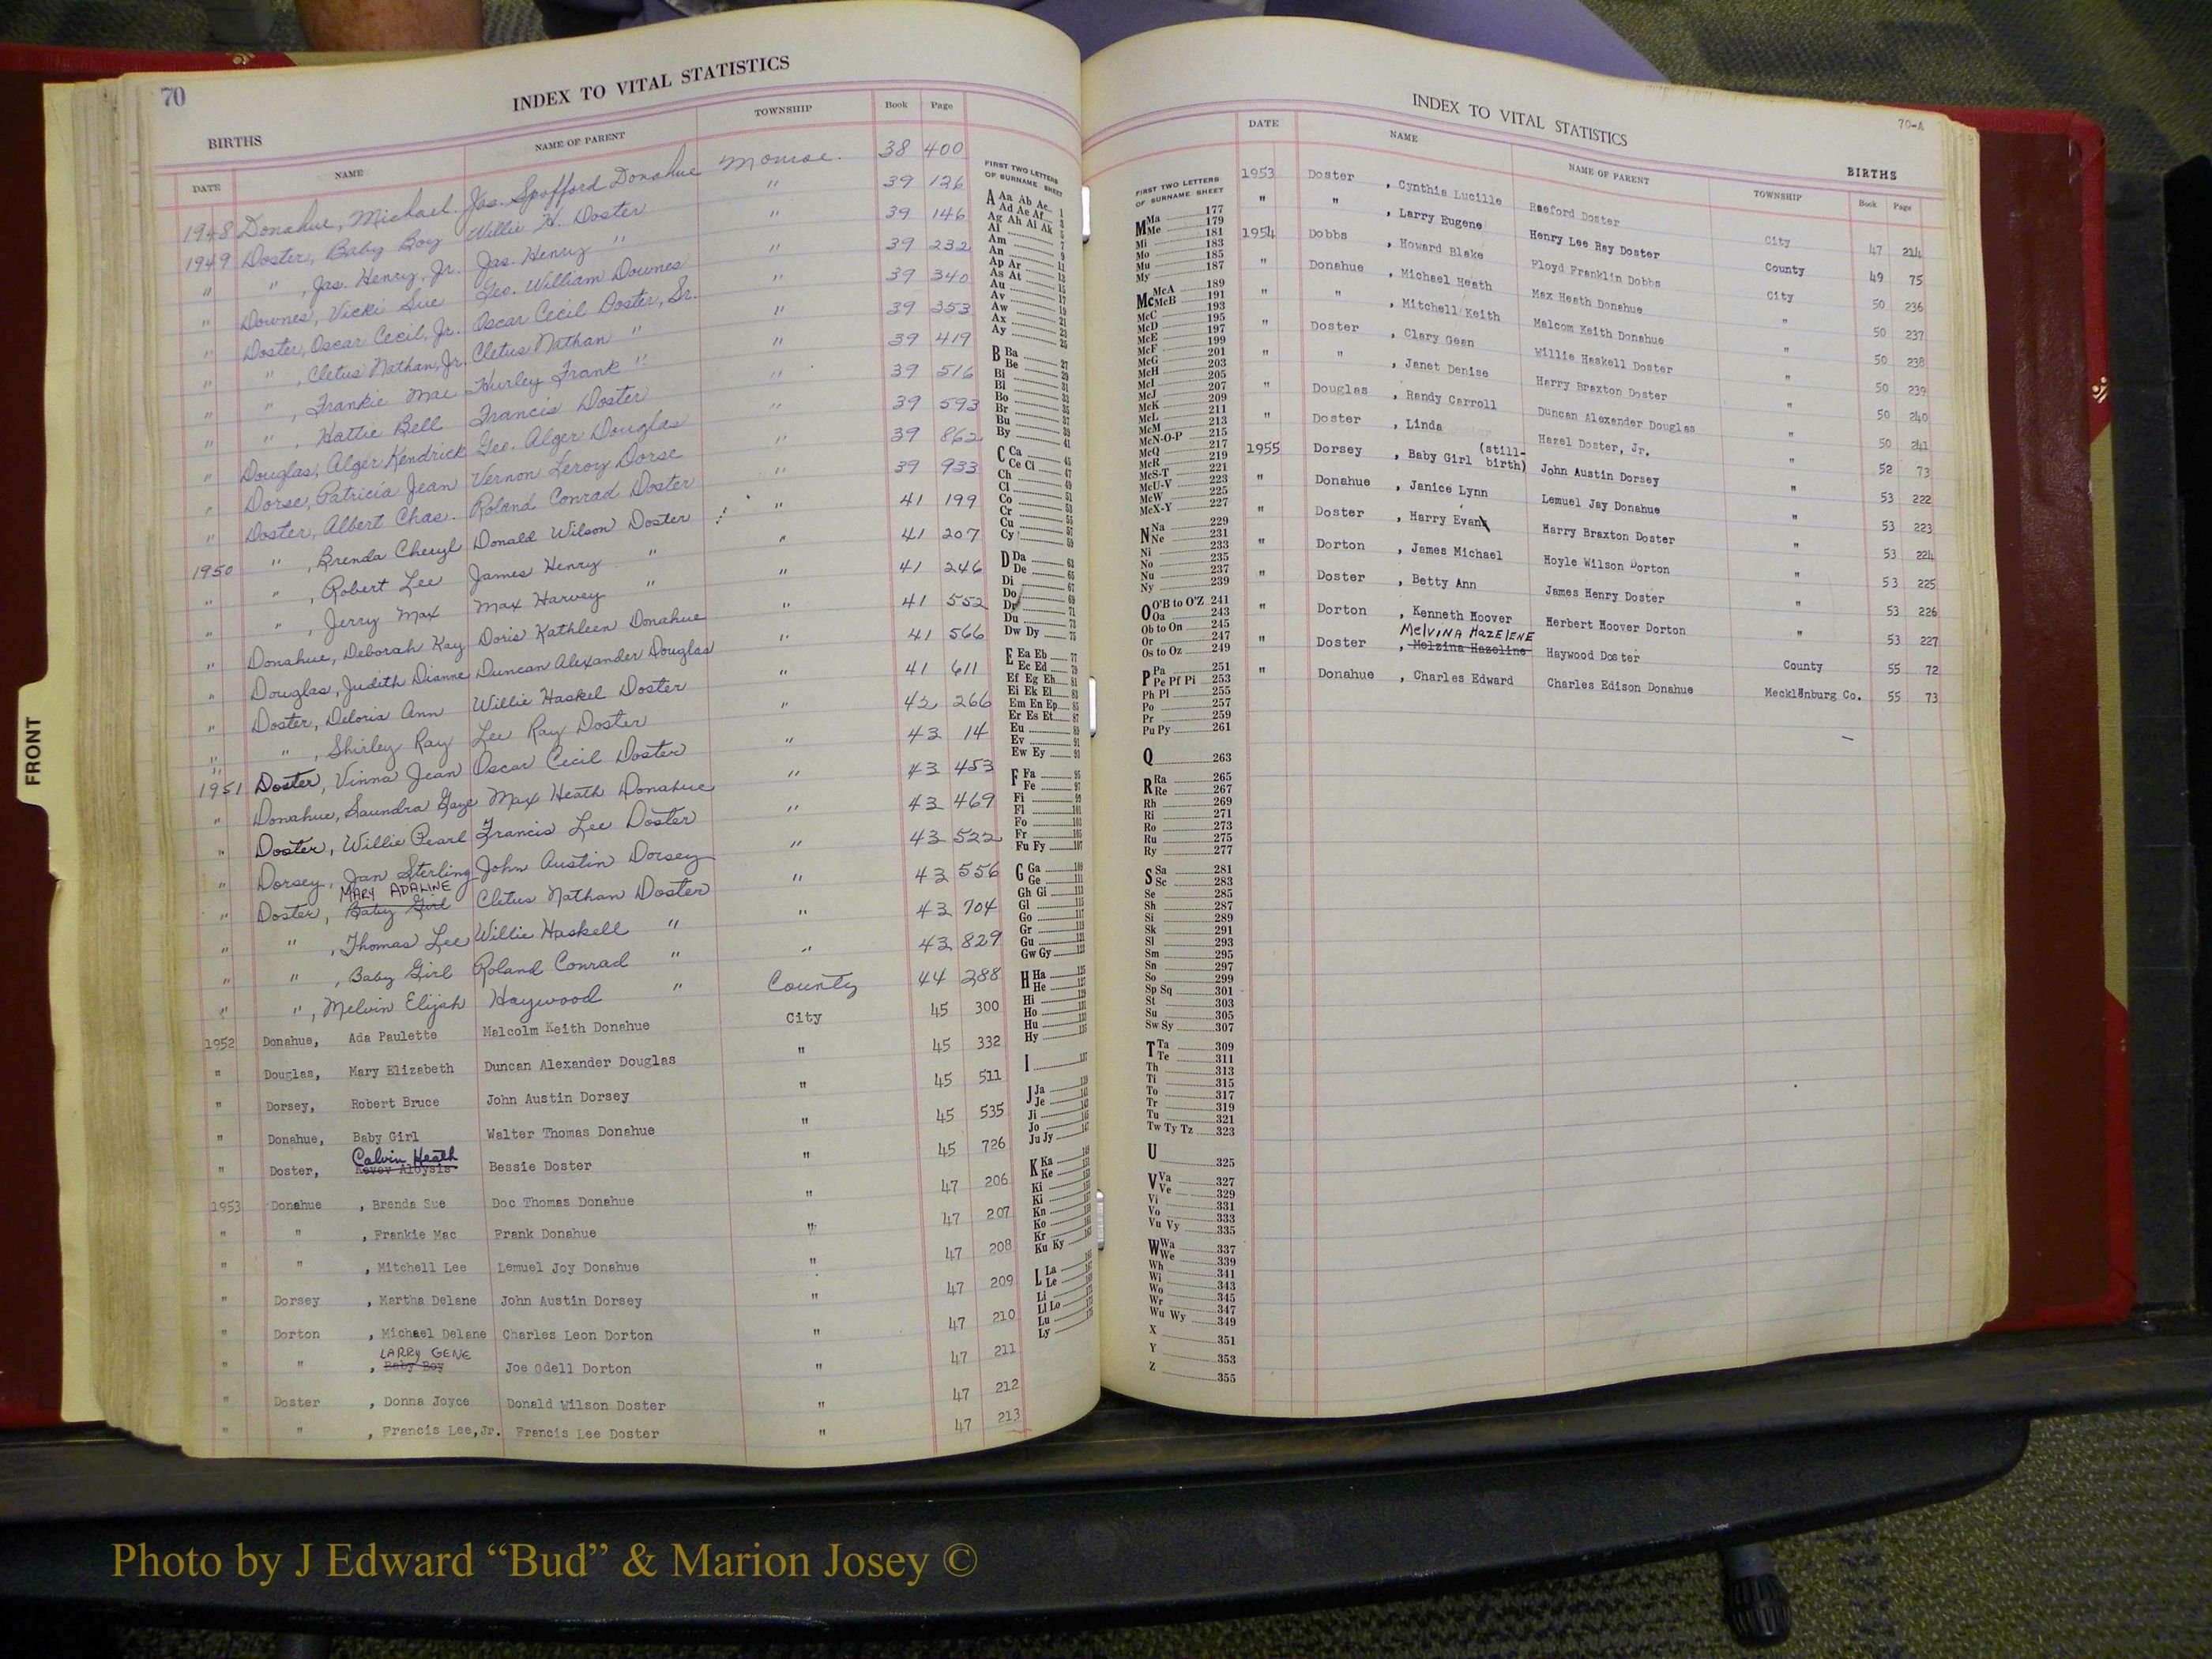 70
INDEX TO VITAL STATISTICS
BIRTHS
DATE NAME NAME OF PARENT TOWNSHIP Book Page
1948 Donahue, Michael Jas. Spofford Donahue Monroe. 38 400
1949 Doster, Baby Boy Willie H. Doster " 39 126
" " , Jas. Henry, Jr. Jas. Henry " " 39 146
" Downes, Vicki Sue Geo. William Downes " 39 232
" Doster, Oscar Cecil, Jr. Oscar Cecil Doster, Sr. " 39 340
" " , Cletus Nathan, Jr. Cletus Nathan " " 39 353
" " , Frankie Mae Hurley Frank " " 39 419
" " , Hattie Bell Francis Doster " 39 516
" Douglas, Alger Kendrick Geo. Alger Douglas " 39 593
" Dorse, Patricia Jean Vernon Leroy Dorse " 39 862
" Doster, Albert Chas. Roland Conrad Doster " 39 933
1950 " , Brenda Cheryl Donald Wilson Doster " 41 199
" " , Robert Lee James Henry " " 41 207
" " , Jerry Max Max Harvey " " 41 246
" Donahue, Deborah Kay Doris Kathleen Donahue " 41 552
" Douglas, Judith Dianne Duncan Alexander Douglas " 41 566
" Doster, Deloris Ann Willie Haskel Doster " 41 611
" " , Shirley Ray Lee Ray Doster " 42 266
1951 Doster, Vinna Jean Oscar Cecil Doster " 43 14
" Donahue, Saundra Gaye Max Heath Donahue " 43 453
" Doster, Willie Pearl Francis Lee Doster " 43 469
" Dorsey, Jan Sterling John Austin Dorsey " 43 522
MARY ADALINE
" Doster, Baby Girl Cletus Nathan Doster " 43 556
" " , Thomas Lee Willie Haskell " " 43 704
" " , Baby Girl Roland Conrad " " 43 829
" " , Melvin Elijah Haywood " County 44 288
1952 Donahue, Ada Paulette Malcolm Keith Donahue City 45 300
" Douglas, Mary Elizabeth Duncan Alexander Douglas " 45 332
" Dorsey, Robert Bruce John Austin Dorsey " 45 511
" Donahue, Baby Girl Walter Thomas Donahue " 45 535
Calvin Heath
" Doster, Aloysis Bessie Doster " 45 726
1953 Donahue , Brenda Sue Doc Thomas Donahue " 47 206
" " , Frankie Mac Frank Donahue " 47 207
" " , Mitchell Lee Lemuel Joy Donahue " 47 208
" Dorsey , Martha Delane John Austin Dorsey " 47 209
" Dorton , Michael Delane Charles Leon Dorton " 47 210
LARRY GENE
" " , Baby Boy Joe Odell Dorton " 47 211
" Doster , Donna Joyce Donald Wilson Doster " 47 212
" " , Francis Lee,Jr. Francis Lee Doster " 47 213
FIRST TWO LETTERS
OF SURNAME SHEET
A Aa Ab Ac 1
Ad Ae Af 3
Ag Ah Ai Ak 5
Al 7
Am 9
An 11
Ap Ar 13
As At 15
Au 17
Av 19
Aw 21
Ax 23
Ay 25
B Ba 27
Be 29
Bi 31
Bl 33
Bo 35
Br 37
Bu 39
By 41
C Ca 45
Ce Ci 47
Ch 49
Cl 51
Co 53
Cr 55
Cu 57
Cy 59
D Da 63
De 65
Di 67
Do 69
Dr 71
Du 73
Dw Dy 75
E Ea Eb 77
Ec Ed 79
Ef Eg Eh 81
Ei Ek El 83
Em En Ep 85
Er Es Et 87
Eu 89
Ev 91
Ew Ey 93
F Fa 95
Fe 97
Fi 99
Fl 101
Fo 103
Fr 105
Fu Fy 107
G Ga 109
Ge 111
Gh Gi 113
Gl 115
Go 117
Gr 119
Gu 121
Gw Gy 123
H Ha 125
He 127
Hi 129
Ho 131
Hu 133
Hy 135
I 137
J Ja 139
Je 141
Ji 143
Jo 145
Ju Jy 147
K Ka 149
Ke 151
Ki
Kl
Kn
Ko
Kr
Ku Ky
L La
Le
Li
Ll Lo
Lu
Ly
FRONT
INDEX TO VITAL STATISTICS
70-A
BIRTHS
DATE NAME NAME OF PARENT TOWNSHIP Book Page
1953 Doster , Cynthia Lucille Raeford Doster City 47 214
" " , Larry Eugene Henry Lee Ray Doster County 49 75
1954 Dobbs , Howard Blake Floyd Franklin Dobbs City 50 236
" Donahue , Michael Heath Max Heath Donahue " 50 237
" " , Mitchell Keith Malcom Keith Donahue " 50 238
" Doster , Clary Gean Willie Haskell Doster " 50 239
" " , Janet Denise Harry Braxton Doster " 50 240
" Douglas , Randy Carroll Duncan Alexander Douglas " 50 241
" Doster , Linda Hazel Doster, Jr. " 52 73
1955 Dorsey , Baby Girl (still-birth) John Austin Dorsey " 53 222
" Donahue , Janice Lynn Lemuel Jay Donahue " 53 223
" Doster , Harry Evans Harry Braxton Doster " 53 224
" Dorton , James Michael Hoyle Wilson Dorton " 53 225
" Doster , Betty Ann James Henry Doster " 53 226
" Dorton , Kenneth Hoover Herbert Hoover Dorton " 53 227
MELVINA HAZELENE
" Doster , Melzina Hazeline Haywood Doster County 55 72
" Donahue , Charles Edward Charles Edison Donahue Mecklenburg Co. 55 73
FIRST TWO LETTERS
OF SURNAME SHEET
M Ma 177
Me 179
Mi 181
Mo 183
Mu 185
My 187
Mc McA 189
McB 191
McC 193
McD 195
McE 197
McF 199
McG 201
McH 203
McI 205
McJ 207
McK 209
McL 211
McM 213
McN-O-P 215
McQ 217
McR 219
McS-T 221
McU-V 223
McW 225
McX-Y 227
N Na 229
Ne 231
Ni 233
No 235
Nu 237
Ny 239
O O'B to O'Z 241
Oa 243
Ob to On 245
Or 247
Os to Oz 249
P Pa 251
Pe Pf Pi 253
Ph Pl 255
Po 257
Pr 259
Pu Py 261
Q 263
R Ra 265
Re 267
Rh 269
Ri 271
Ro 273
Ru 275
Ry 277
S Sa 281
Sc 283
Se 285
Sh 287
Si 289
Sk 291
Sl 293
Sm 295
Sn 297
So 299
Sp Sq 301
St 303
Su 305
Sw Sy 307
T Ta 309
Te 311
Th 313
Ti 315
To 317
Tr 319
Tu 321
Tw Ty Tz 323
U 325
V Va 327
Ve 329
Vi 331
Vo 333
Vu Vy 335
W Wa 337
We 339
Wh 341
Wi 343
Wo 345
Wr 347
Wu Wy 349
X 351
Y 353
Z 355
Photo by J Edward “Bud” & Marion Josey ©